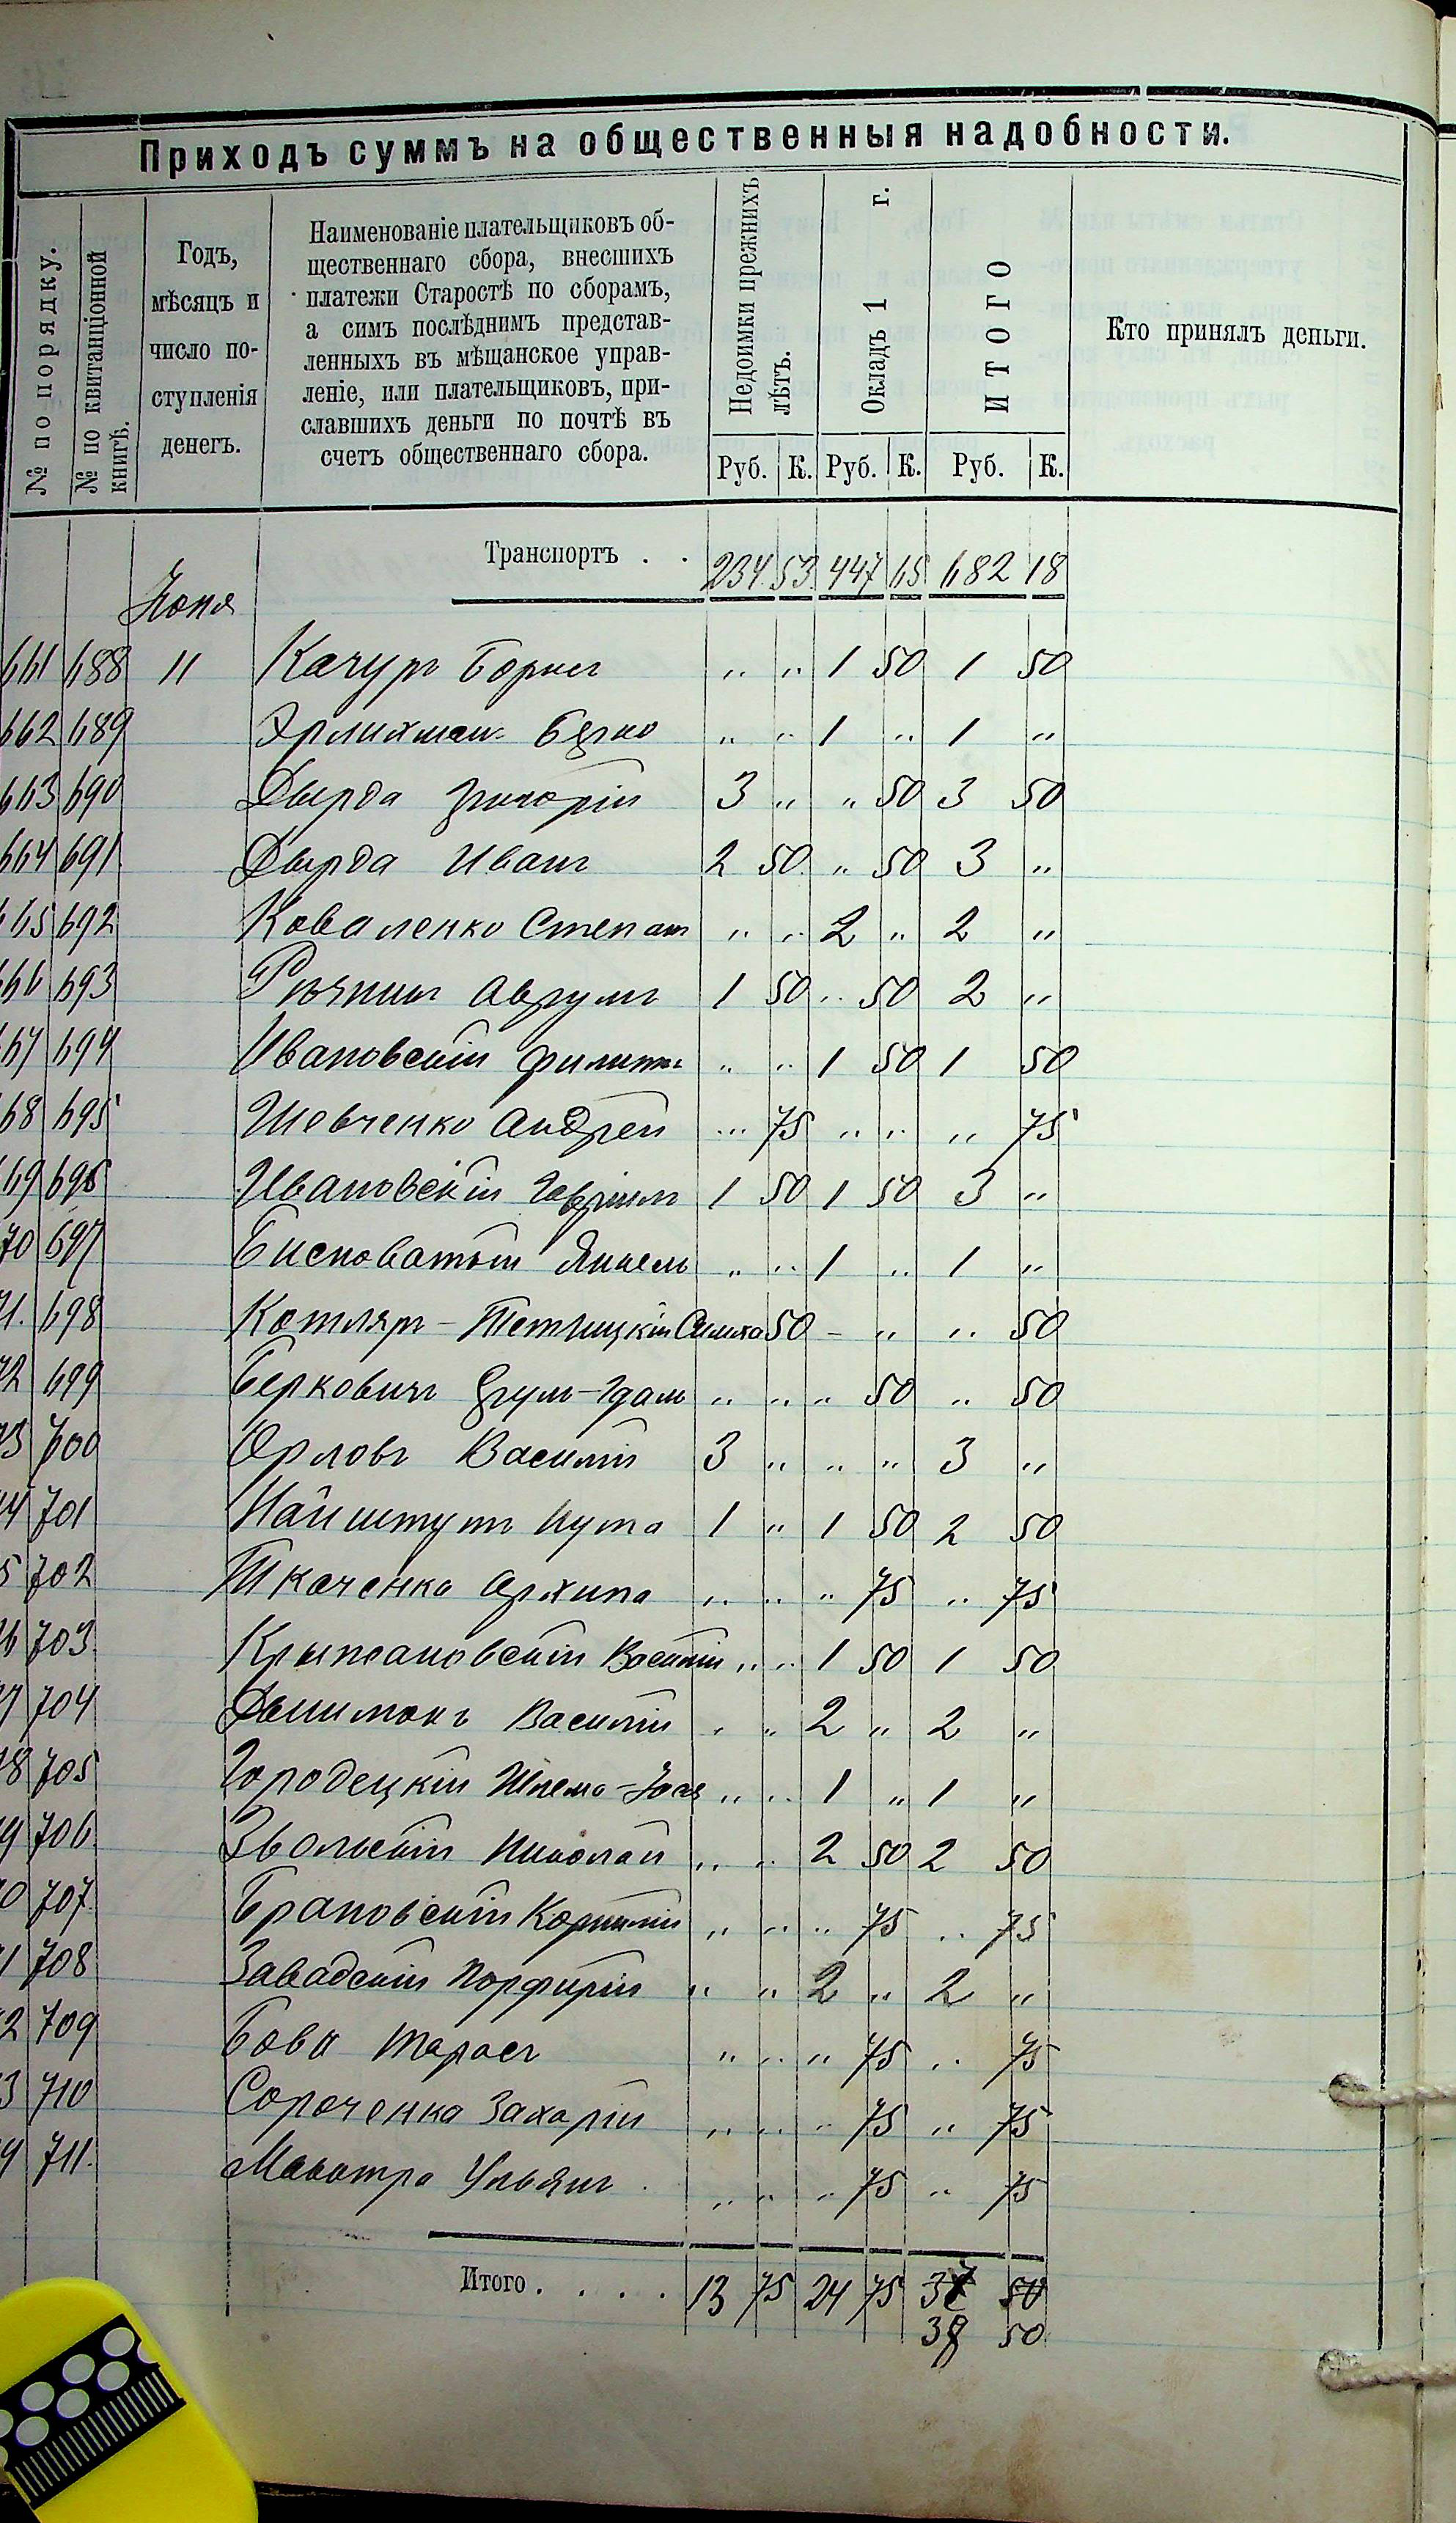 Приходъ суммъ на общественныя надобности.
№ по порядку.
№ по квитанціонной книгѣ.
Годъ,
мѣсяцъ и
число по-
ступленія
денегъ.
Наименованіе плательщиковъ об-
щественнаго сбора, внесшихъ
платежи Старостѣ по сборамъ,
а симъ послѣднимъ представ-
ленныхъ въ мѣщанское управ-
леніе, или плательщиковъ, при-
славшихъ деньги по почтѣ въ
счетъ общественнаго сбора.
Недоимки прежнихъ лѣтъ.
Окладъ 1 г.
ИТОГО
Кто принялъ деньги.
Руб. К. Руб. К. Руб. К.
Транспортъ . . 234 53 447 65 682 18
Іюня
661 688 11 Качуръ Борисъ „ „ 1 50 1 50
662 689 Эрлихман „ „ 1 „ 1 „
663 690 Дырда Григорій 3 „ „ 50 3 50
664 691 Дырда Иванъ 2 50 „ 50 3 „
665 692 Коваленко Степанъ „ „ 2 „ 2 „
666 693 Аврумъ 1 50 „ 50 2 „
67 694 Ивановскій Филиппъ „ „ 1 50 1 50
68 695 Шевченко Андрей „ 75 „ „ „ 75
69 696 Ивановскій Гавріилъ 1 50 1 50 3 „
70 697 Бисноватый Янкель „ „ 1 „ 1 „
71. 698 Котляръ - Тетлицкій Симха 50 - „ „ 50
72 699 Берковичъ „ „ „ 50 „ 50
73 700 Орловъ Василій 3 „ „ „ 3 „
4 701 Найштутъ Нута 1 „ 1 50 2 50
5 702 Ткаченко Архипа „ „ „ 75 „ 75
6 703 Крыжановскій Василій „ „ 1 50 1 50
7 704 Василій „ „ 2 „ 2 „
8 705 Городецкій Шлема- „ „ 1 „ 1 „
9 706 Звольскій Николай „ „ 2 50 2 50
0 707 Брановскій Корнилій „ „ „ 75 „ 75
1 708 Завадскій Порфирій „ „ 2 „ 2 „
2 709 Бова Тарасъ „ „ „ 75 „ 75
3 710 Сороченко Захарій „ „ „ 75 „ 75
4 711. Ульянъ „ „ „ 75 „ 75
Итого . . . . 13 75 24 75 37 50
38 50